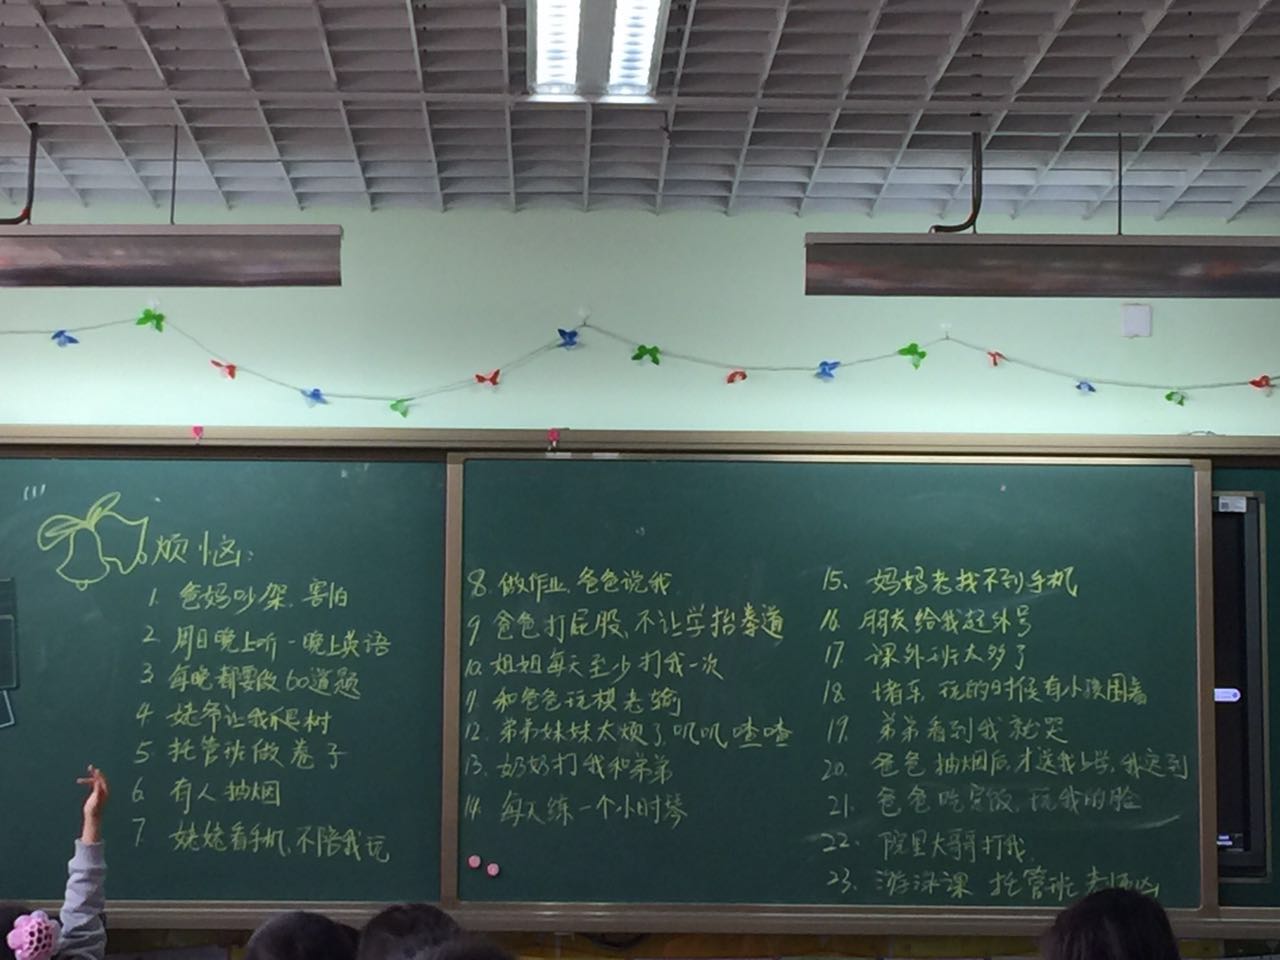 (1)
烦恼:
1. 爸妈吵架、害怕
2 周日晚上听一晚上英语
3 每晚都要做60道题
4 姥爷让我爬树
5 托管班做卷子
6 有人抽烟
7 姥姥看手机,不陪我玩
8. 做作业,爸爸说我
9 爸爸打屁股、不让学抬拳道
10. 姐姐每天至少打我一次
11. 和爸爸玩棋老输
12. 弟弟妹妹太烦了叽叽喳喳
13. 奶奶打我和弟弟
14. 每天练一个小时琴
15. 妈妈老找不到手机
16. 朋友给我起外号
17. 课外班太多了
18. 堵车 玩的时候有小孩围着
19. 弟弟看到我就哭
20. 爸爸抽烟后,才送我上学,我迟到
21. 爸爸吃完饭,玩我的脸
22. 院里大哥哥打我
23. 游泳课 托管班老师凶